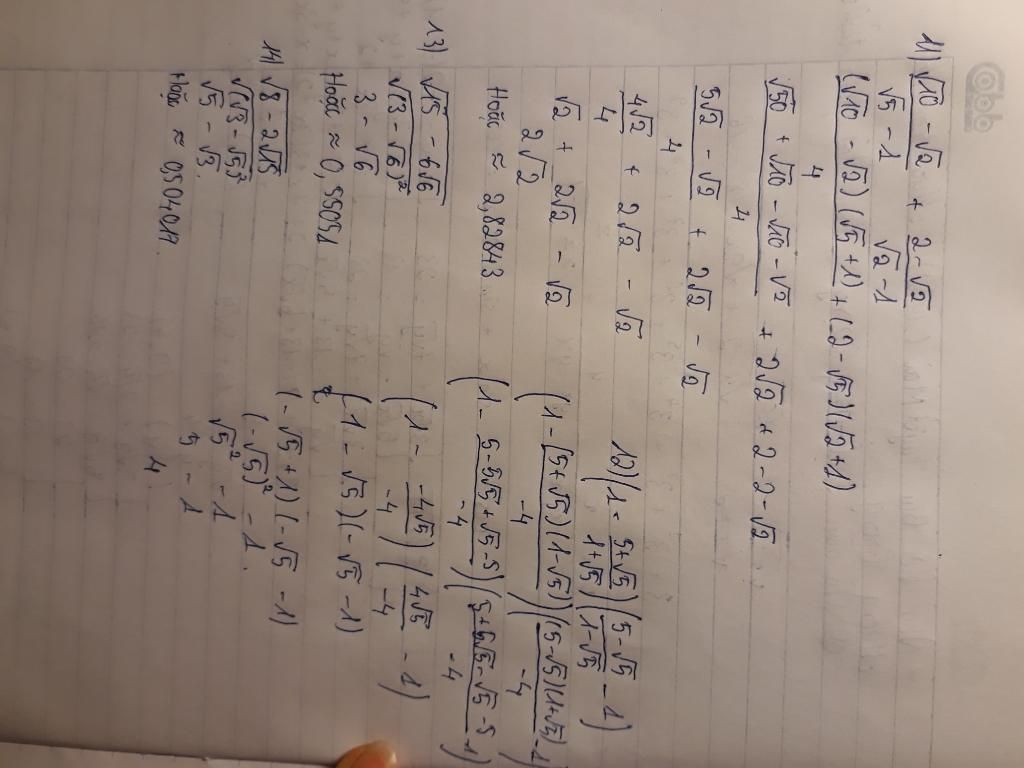 11) \frac{\sqrt{10} - \sqrt{2}}{\sqrt{5} - 1} + \frac{2 - \sqrt{2}}{\sqrt{2} - 1}
\frac{(\sqrt{10} - \sqrt{2})(\sqrt{5} + 1)}{4} + (2 - \sqrt{2})(\sqrt{2} + 1)
\frac{\sqrt{50} + \sqrt{10} - \sqrt{10} - \sqrt{2}}{4} + 2\sqrt{2} + 2 - 2 - \sqrt{2}
\frac{5\sqrt{2} - \sqrt{2}}{4} + 2\sqrt{2} - \sqrt{2}
\frac{4\sqrt{2}}{4} + 2\sqrt{2} - \sqrt{2}
\sqrt{2} + 2\sqrt{2} - \sqrt{2}
2\sqrt{2}
Hoặc ≈ 2,82843
12) (1 - \frac{5 + \sqrt{5}}{1 + \sqrt{5}})(\frac{5 - \sqrt{5}}{1 - \sqrt{5}} - 1)
(1 - \frac{(5 + \sqrt{5})(1 - \sqrt{5})}{-4})(\frac{(5 - \sqrt{5})(1 + \sqrt{5})}{-4} - 1)
(1 - \frac{5 - 5\sqrt{5} + \sqrt{5} - 5}{-4})(\frac{5 + 5\sqrt{5} - \sqrt{5} - 5}{-4} - 1)
(1 - \frac{-4\sqrt{5}}{-4})(\frac{4\sqrt{5}}{-4} - 1)
(1 - \sqrt{5})(-\sqrt{5} - 1)
(-\sqrt{5} + 1)(-\sqrt{5} - 1)
(-\sqrt{5})^2 - 1
\sqrt{5}^2 - 1
5 - 1
4
13) \sqrt{15 - 6\sqrt{6}}
\sqrt{(3 - \sqrt{6})^2}
3 - \sqrt{6}
Hoặc ≈ 0,55051
14) \sqrt{8 - 2\sqrt{15}}
\sqrt{(\sqrt{3} - \sqrt{5})^2}
\sqrt{5} - \sqrt{3}
Hoặc ≈ 0,504017